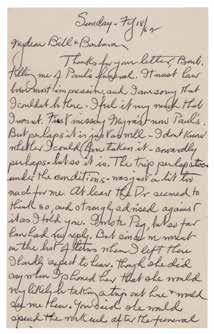 Sunday - Fy 18/12
My dear Bill + Barbara,
Thanks for your letter, Barb.
telling me of Paul's funeral. It must have
been most impressive, and I am sorry that
I couldn't be there. I feel it very much that
I wasn't. missing my Paul's.
But perhaps it is just as well - I don't know
whether I could have taken it - cowardly
perhaps - but so it is. The trip perhaps too -
under the conditions, - was just a bit too
much for me. At least the Dr. seemed to
think so, and strongly advised against
it as I told you. I wrote Peg, but so far
have had no reply. But since we weren't
on the best of terms when I left there
I hardly expect to hear, though she did
say when I phoned her, that she would
very likely be taking a trip out here + would
see me then. You said she would
spend the week end after the funeral